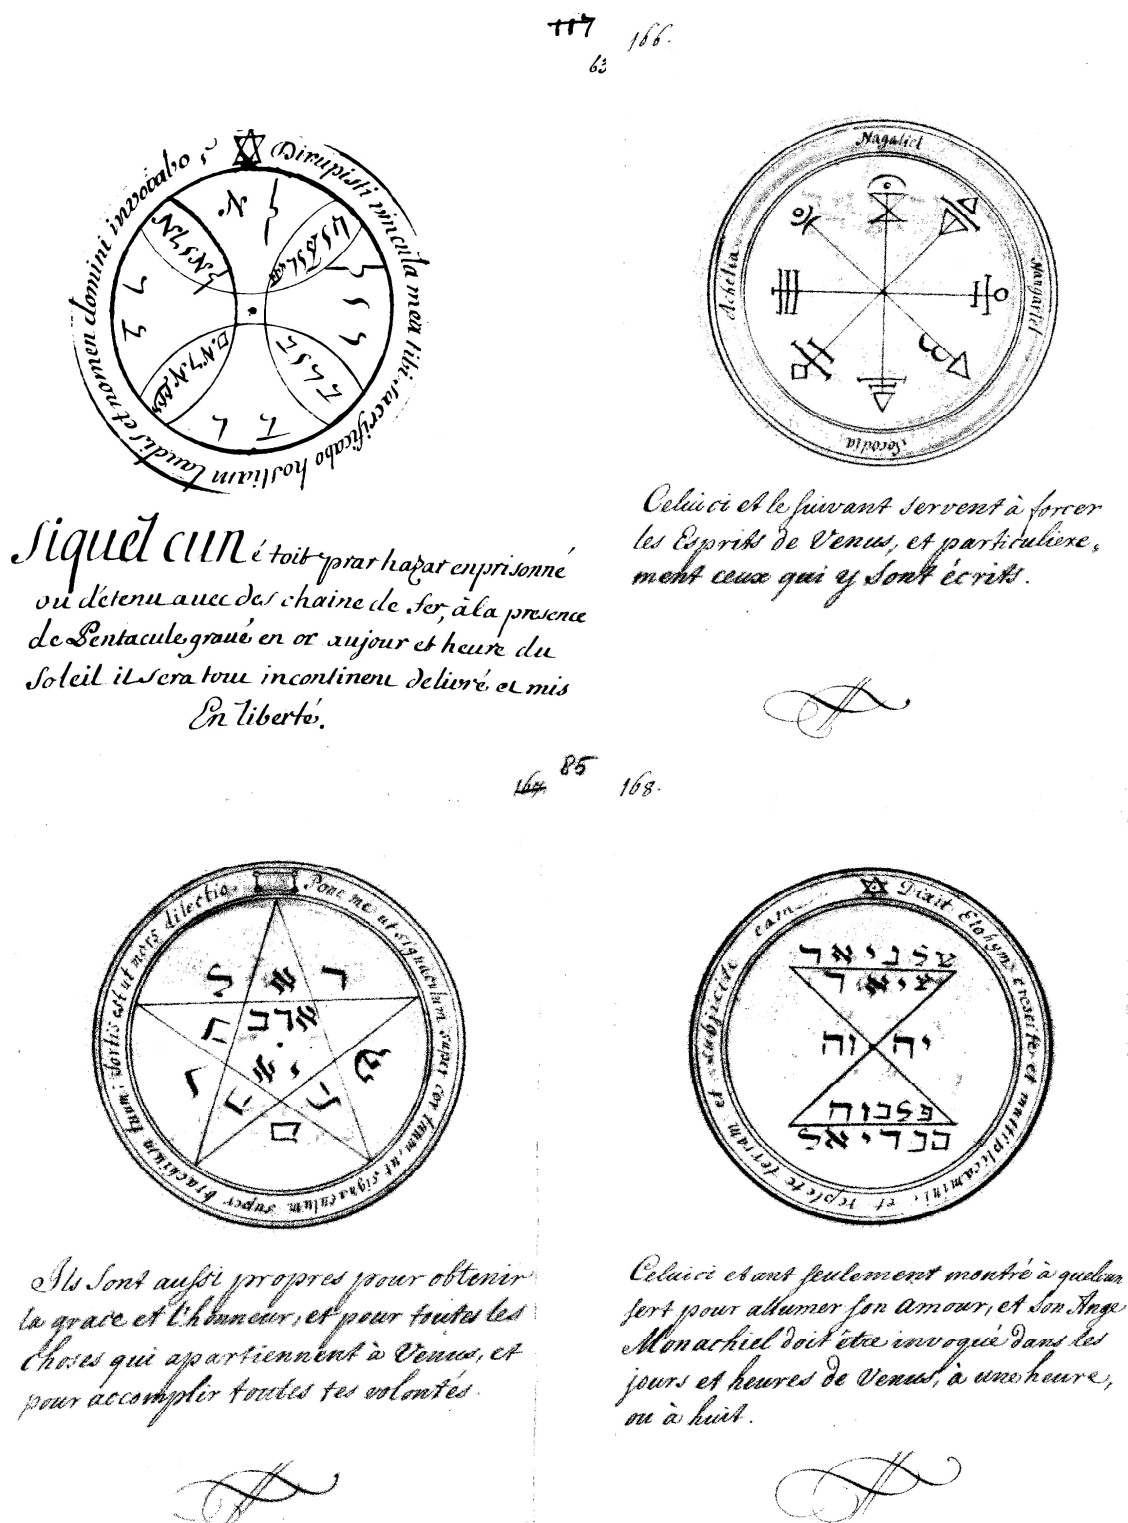 117 166.
63
Dirupisti vincula mea tibi sacrificabo hostiam laudis et nomen domini invocabo
Siquèl cun é toit prar hazar enprisonné
ou détenu auec des chaine de fer, à la presence
de Pentacule graué en or aujour et heure du
Soleil il sera tout incontinent deliuré et mis
En liberté.
Nagaliel
Acheliа
Socodia
Celui ci et le suivant servent à forcer
les Esprits de Venus, et particuliere,
ment ceux qui y sont écrits.
85
167. 168.
Pone me ut signaculum super cor tuum, ut signaculum super brachium tuum: fortis est ut mors dilectio.
ר א ל
ארב
ש
ם
Ils sont aussi propres pour obtenir
la grace et l'honneur, et pour toutes les
choses qui apartiennent à Venus, et
pour accomplir toutes tes volontés.
Dixit Elohym: crescite et multiplicamini, et replete terram et subjicite eam
יה וה
Celui ci etant seulement montré à quelcun
sert pour allumer son amour, et son Ange
Monachiel doit être invoqué dans les
jours et heures de Venus, à une heure,
ou à huit.